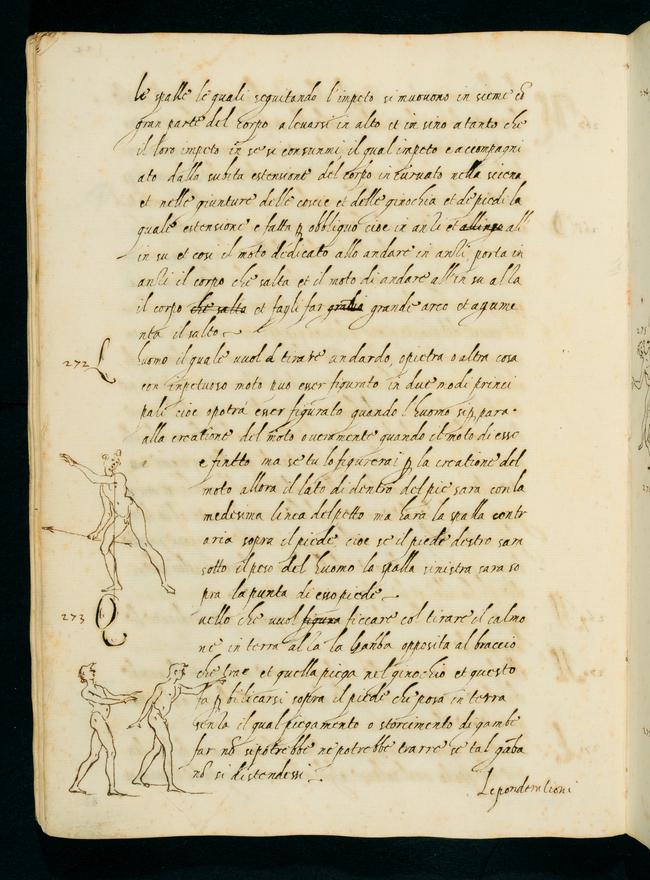 le spalle le quali seguitando l'impeto si muovono in sieme cō
gran parte del corpo a levarsi in alto et in sino a tanto che
il loro impeto in se si consunmi, il qual impeto e accompagni
ato dalla subita estensione del corpo incurvato nella sciena
et nelle giunture delle coscie et delle ginochia et de piedi la
quale estensione e fatta p obbliquo cioe in anti et all
in su et cosi il moto dedicato allo andare in anti, porta in
anti il corpo che salta et il moto di andare all'in su alza
il corpo che salta et fagli far grande arco et agume
nta il salto
272 L
huomo il quale vuol tirare un dardo, o pietra o altra cosa
con inpetuoso moto puo esser figurato in due modi princi
pali cioe o potra esser figurato quando l'huomo si p para
alla creatione del moto overamente quando il moto di esso
e finito ma se tu lo figurerai p la creatione del
moto allora il lato di dentro del pie sara con la
medesima linea del petto ma hara la spalla contr
aria sopra il piede cioe se il piede destro sara
sotto il peso del huomo la spalla sinistra sara so
pra la punta di esso piede
273 Q
uello che vuol figura ficcare col tirare il calmo
ne in terra alza la gamba opposita al braccio
che trae et quella piega nel ginochio et questo
fa p bilicarsi sopra il piede che posa in terra
senza il qual piegamento o storcimento di gambe
far nō si potrebbe ne potrebbe trarre se tal gāba
nō si distendessi
Le ponderationi